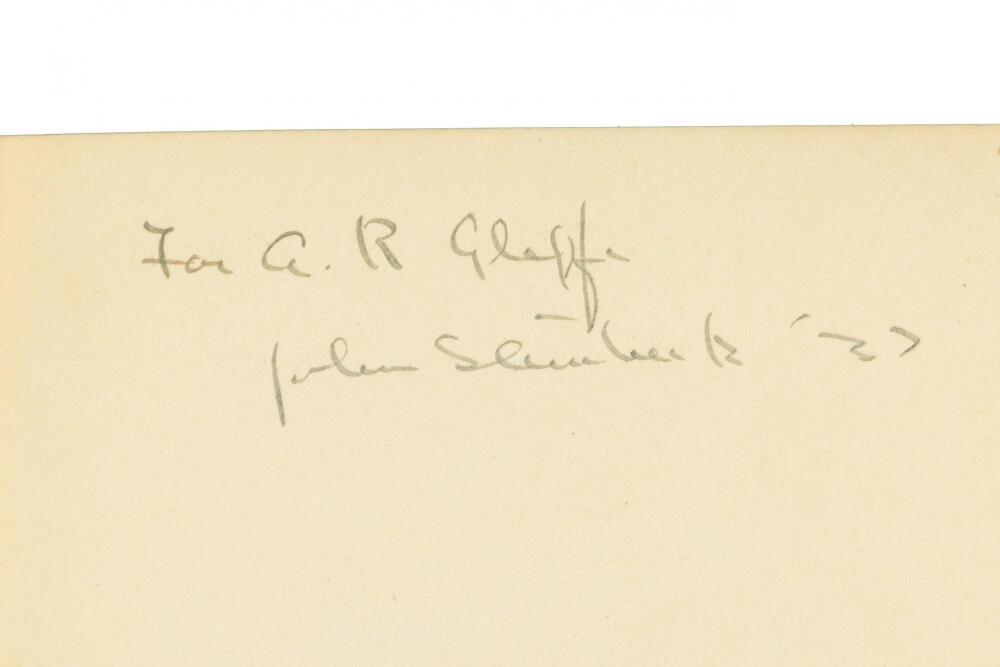 For A. R
John Steinbeck '37